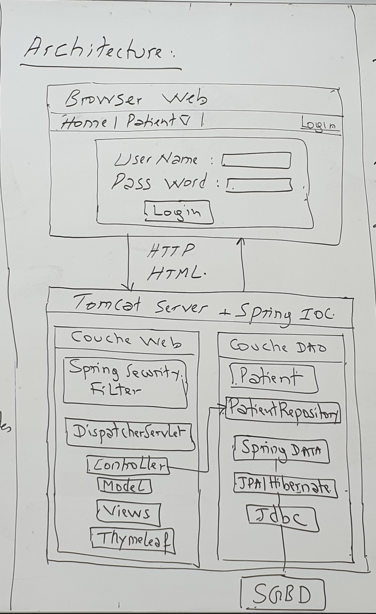 Architecture:
Browser Web
Home | Patient ▽ |
Login
User Name :
Pass Word :
Login
HTTP
HTML.
Tomcat Server + Spring IOC
Couche Web
Spring Security
Filter
DispatcherServlet
Controller
Model
Views
Thymeleaf
Couche DAO
Patient
PatientRepository
Spring DATA
JPA/Hibernate
Jdbc
SGBD